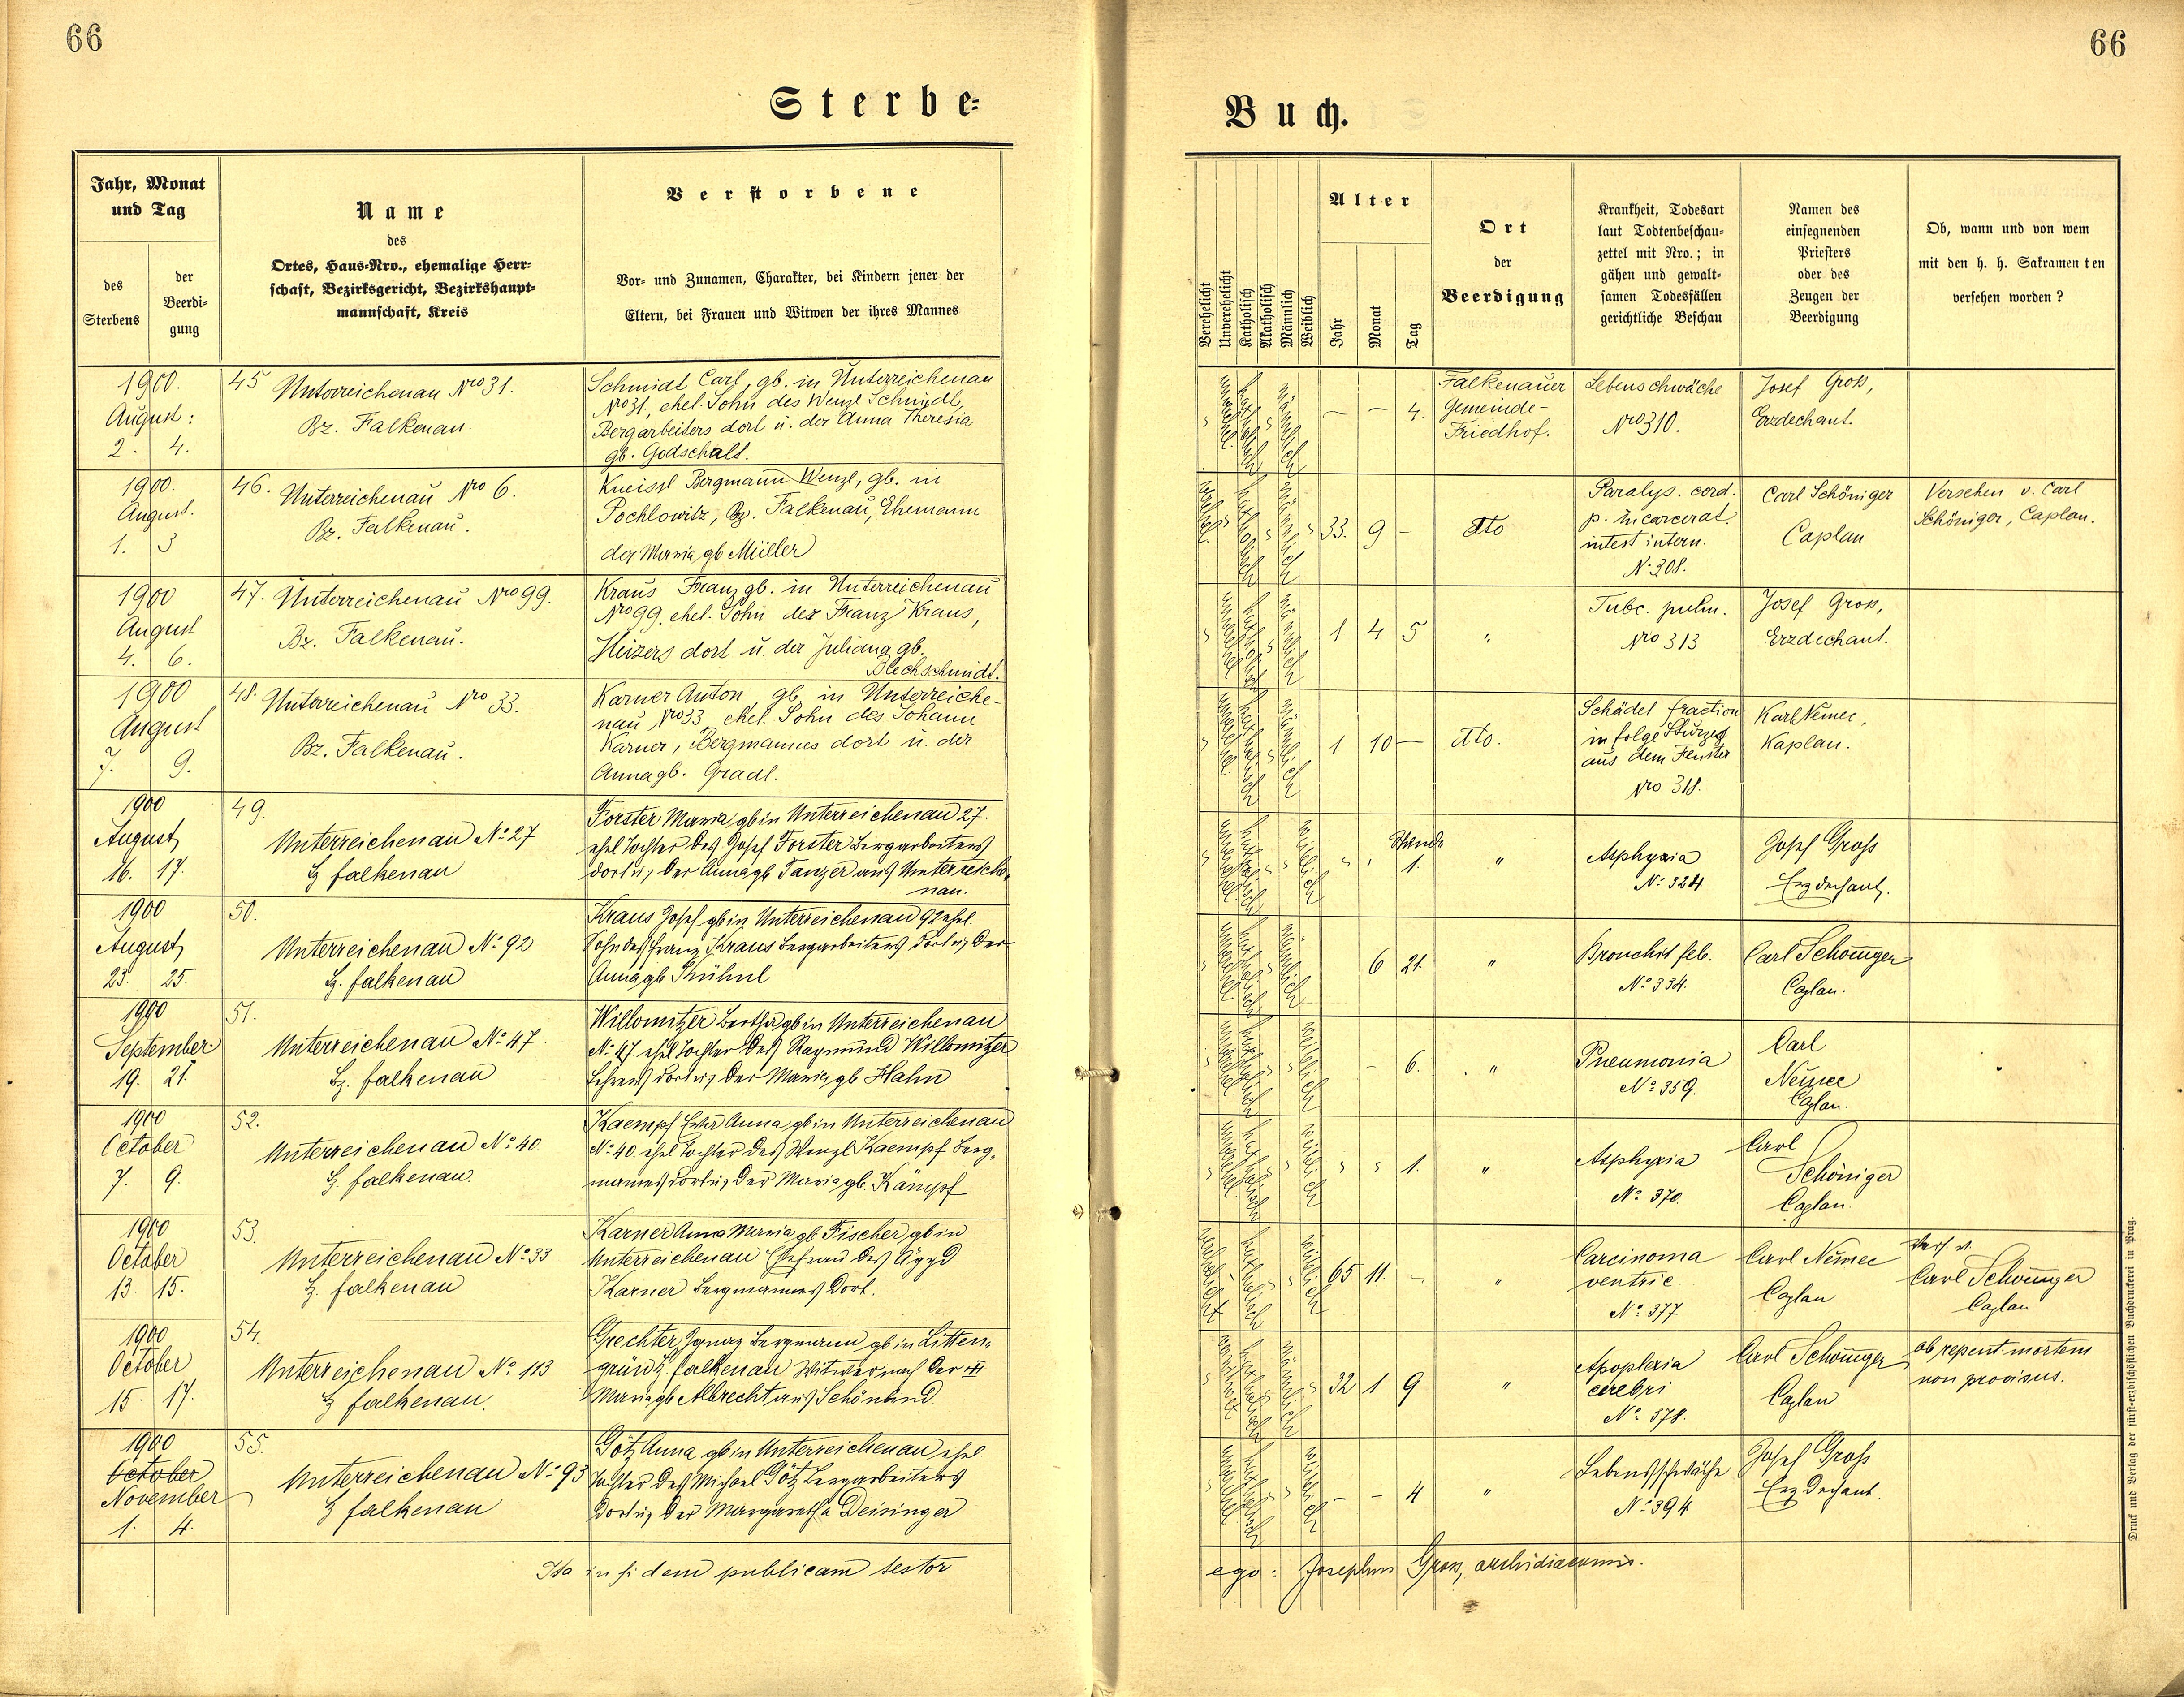 66
66
Sterbe-
Buch.
Jahr, Monat
und Tag
des
Sterbens
der
Beerdi-
gung
Name
des
Ortes, Haus-Nro., ehemalige Herr-
schaft, Bezirksgericht, Bezirkshaupt-
mannschaft, Kreis
Verstorbene
Vor- und Zunamen, Charakter, bei Kindern jener der
Eltern, bei Frauen und Witwen der ihres Mannes
Verehelicht
Unverehelicht
Katholisch
Akatholisch
Männlich
Weiblich
Alter
Jahr
Monat
Tag
Ort
der
Beerdigung
Krankheit, Todesart
laut Todtenbeschau-
zettel mit Nro.; in
gähen und gewalt-
samen Todesfällen
gerichtliche Beschau
Namen des
einsegnenden
Priesters
oder des
Zeugen der
Beerdigung
Ob, wann und von wem
mit den h. h. Sakramenten
versehen worden?
1900.
August:
2. 4.
45 Unterreichenau Nro 31.
Bz. Falkenau.
Schmidt Carl, gb. in Unterreichenau
Nro 31, ehel. Sohn des Wenzl Schmidl,
Bergarbeiters dort u. der Anna Theresia
gb. Godschalt.
— — 4.
Falkenauer
Gemeinde-
Friedhof.
Lebenschwäche
Nro 310.
Josef Gross,
Erzdechant.
1900.
August.
1. 3
46. Unterreichenau Nro 6.
Bz. Falkenau.
Kneissl Bergmann Wenzl, gb. in
Pochlowitz, Bz. Falkenau, Ehemann
der Maria gb Müller
33. 9 —
dto
Paralys. cord.
p. incarcerat.
intest intern.
N. 308.
Carl Schöniger
Caplan
Versehen v. Carl
Schöniger, Caplan.
1900
August
4. 6.
47. Unterreichenau Nro 99.
Bz. Falkenau.
Kraus Franz gb. in Unterreichenau
Nro 99. ehel. Sohn des Franz Kraus,
Heizers dort u. der Juliana gb.
Blechschmidt.
1 4 5
"
Tubc. pulm.
Nro 313
Josef Gross,
Erzdechant.
1900
August
7. 9.
48. Unterreichenau Nro 33.
Bz. Falkenau.
Karner Anton, gb. in Unterreiche-
nau Nro 33 ehel. Sohn des Johann
Karner, Bergmannes dort u. der
Anna gb. Gradl.
1 10 —
dto.
Schädel fraction
in folge Sturzes
aus dem Fenster
Nro 318.
Karl Němec,
Kaplan.
1900
August
16. 17.
49.
Unterreichenau No 27
Bz falkenau
Forster Maria gb in Unterreichenau 27.
ehel Tochter des Josef Forster Bergarbeiters
dort u, der Anna gb Tanzer aus Unterreiche-
nau.
Stunde
1.
"
Asphyxia
No 324
Josef Gross
Erzdechant.
1900
August
23. 25.
50.
Unterreichenau No 92
Bz. falkenau
Kraus Josef gb in Unterreichenau 92 ehel.
Sohn des Franz Kraus Bergarbeiters dort u, der
Anna gb
6 21.
"
Bronchit feb.
No 334.
Carl Schöniger
Caplan.
1900
September
19. 21.
51.
Unterreichenau No 47
Bz. falkenau
Willomitzer Bertha gb in Unterreichenau
No 47. ehel Tochter des Raymund Willomitzer
Lehrers dort u, der Maria gb Hahn
— 6.
"
Pneumonia
No 359.
Carl
Němec
Caplan.
1900
October
7. 9.
52.
Unterreichenau No 40.
Bz. falkenau.
Kaempf Anna gb in Unterreichenau
No 40. ehel Tochter des Wenzl Kaempf Berg-
mannes dort u, der Maria gb. Kämpf
1.
"
Asphyxia
No 370
Carl
Schöniger
Caplan.
1900
October
13. 15.
53.
Unterreichenau No 33
Bz. falkenau
Karner Anna Maria gb Fischer gb in
Unterreichenau Ehefrau des Ägyd
Karner Bergmannes dort.
65 11. —
"
Carcinoma
ventric.
No 377
Carl Němec
Caplan
Vers. v.
Carl Schöniger
Caplan
1900
October
15. 17.
54.
Unterreichenau No 113
Bz falkenau.
Grechter Ignaz Bergmann gb in Litten-
grün Bz. falkenau Witwer nach der
Maria gb Albrecht aus Schönlind.
32 1 9
"
Apoplexia
cerebri
No 378.
Carl Schöniger
Caplan
ob repent. mortem
non provisus.
1900
October
November
1. 4.
55.
Unterreichenau No 93
Bz falkenau
Götz Anna gb in Unterreichenau ehel.
Tochter des Michael Götz Bergarbeiters
dort u, der Margaretha Deisinger
— — 4
"
Lebensschwäche
No 394
Josef Gross
Erzdechant.
Ita in fidem publicam testor
ego: Josephus Gross, archidiaconus.
Druck und Verlag der fürst-erzbischöflichen Buchdruckerei in Prag.